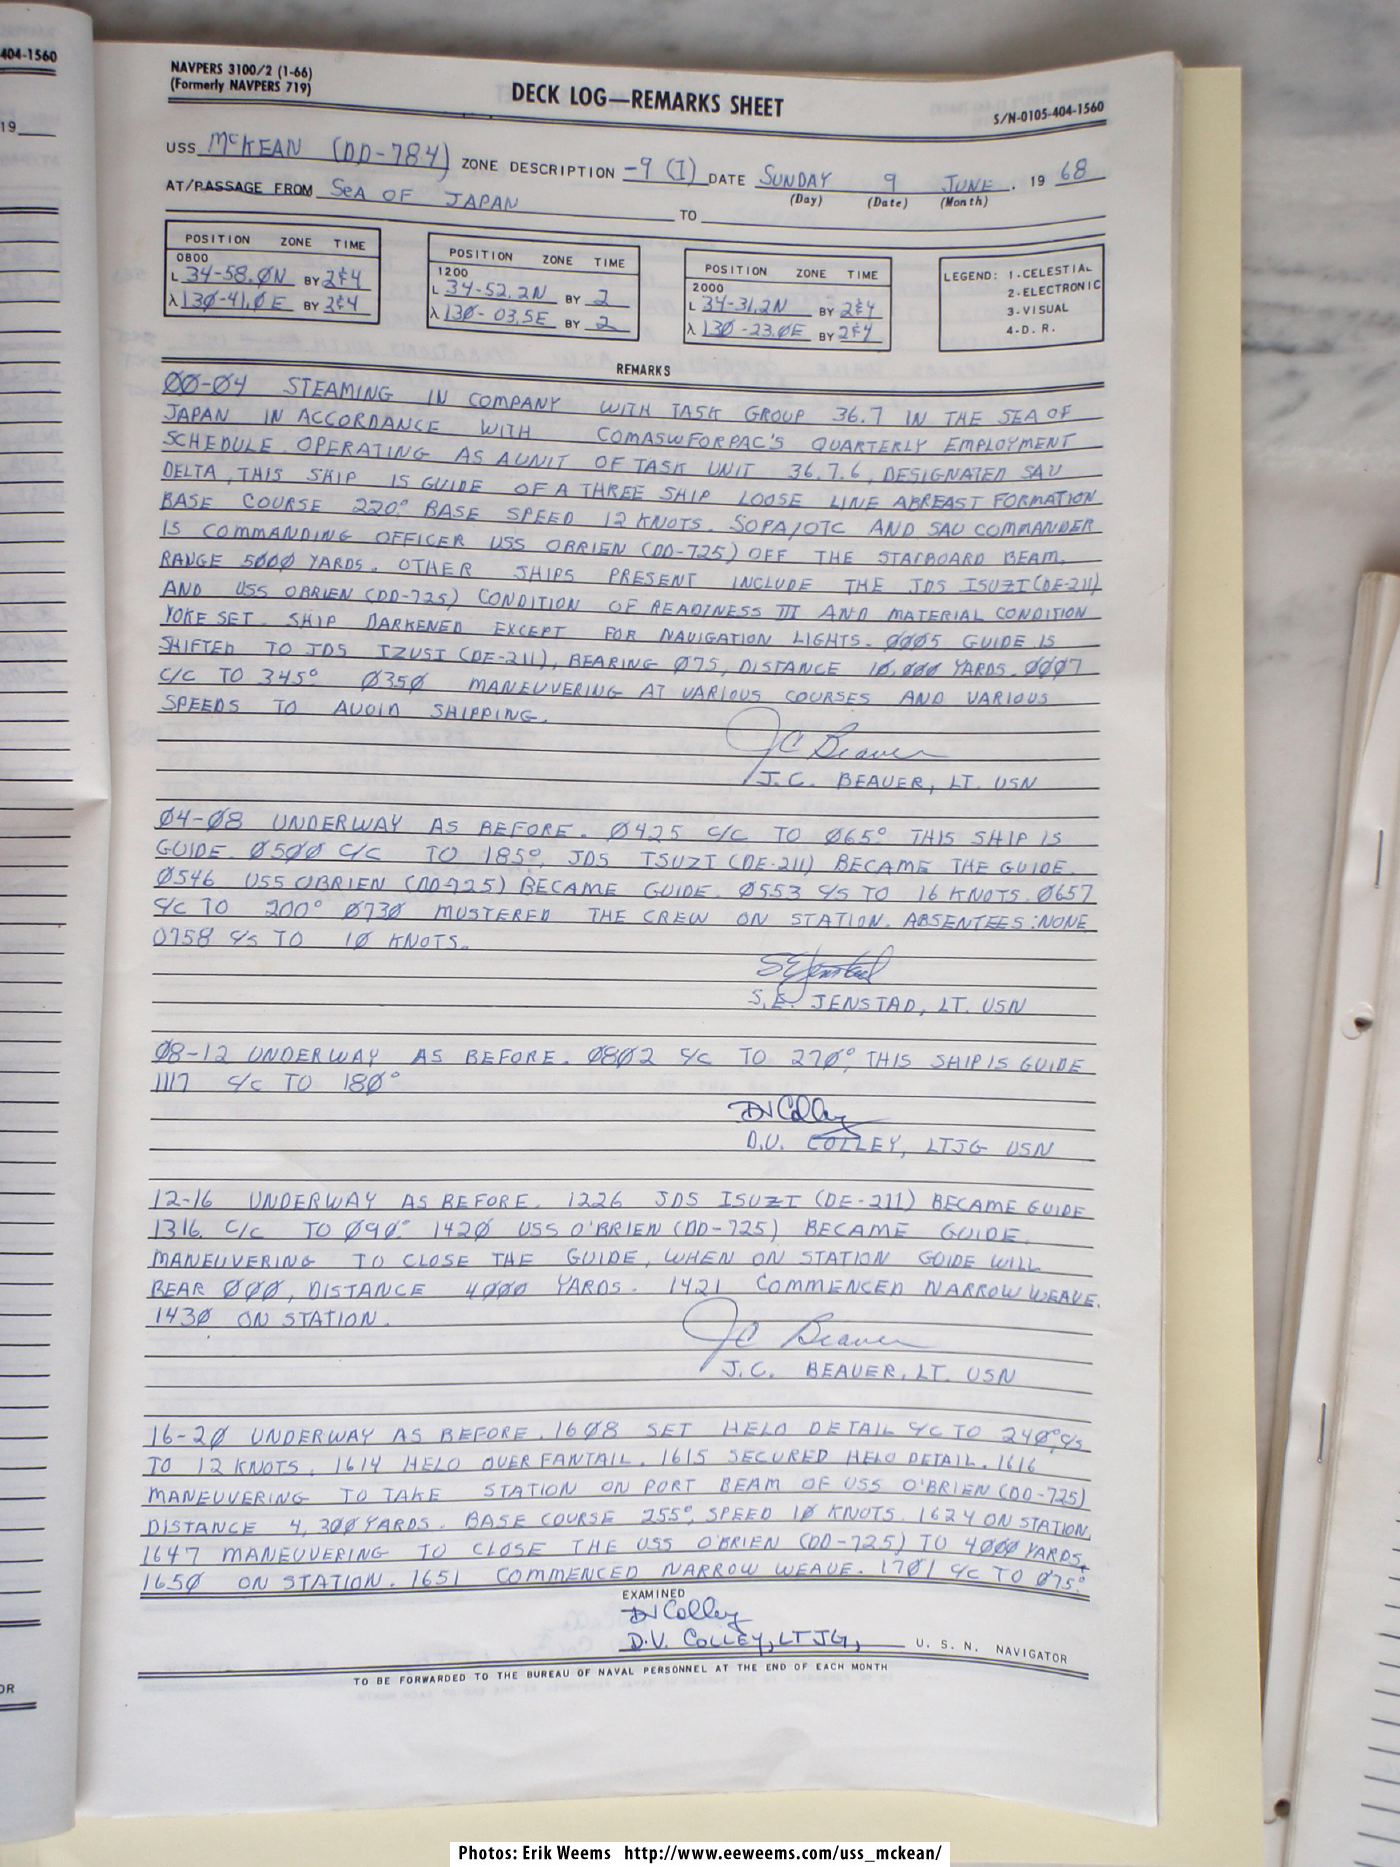 404-1560
19
OR
NAVPERS 3100/2 (1-66)
(Formerly NAVPERS 719)
DECK LOG—REMARKS SHEET
S/N-0105-404-1560
USS McKEAN (DD-784) ZONE DESCRIPTION -9 (I) DATE SUNDAY 9 JUNE, 19 68
(Day) (Date) (Month)
AT/PASSAGE FROM SEA OF JAPAN TO
POSITION ZONE TIME
0800
L 34-58.0N BY 2&4
λ 130-41.0E BY 2&4
POSITION ZONE TIME
1200
L 34-52.2N BY 2
λ 130-03.5E BY 2
POSITION ZONE TIME
2000
L 34-31.2N BY 2&4
λ 130-23.0E BY 2&4
LEGEND: 1-CELESTIAL
2-ELECTRONIC
3-VISUAL
4-D. R.
REMARKS
00-04 STEAMING IN COMPANY WITH TASK GROUP 36.7 IN THE SEA OF
JAPAN IN ACCORDANCE WITH COMASWFORPAC'S QUARTERLY EMPLOYMENT
SCHEDULE. OPERATING AS A UNIT OF TASK UNIT 36.7.6, DESIGNATED SAU
DELTA, THIS SHIP IS GUIDE OF A THREE SHIP LOOSE LINE ABREAST FORMATION
BASE COURSE 220° BASE SPEED 12 KNOTS. SOPA/OTC AND SAU COMMANDER
IS COMMANDING OFFICER USS OBRIEN (DD-725) OFF THE STARBOARD BEAM,
RANGE 5000 YARDS. OTHER SHIPS PRESENT INCLUDE THE JDS ISUZI (DE-211)
AND USS OBRIEN (DD-725) CONDITION OF READINESS III AND MATERIAL CONDITION
YOKE SET. SHIP DARKENED EXCEPT FOR NAVIGATION LIGHTS. 0005 GUIDE IS
SHIFTED TO JDS IZUSI (DE-211), BEARING 075, DISTANCE 10,000 YARDS. 0007
C/C TO 345° 0350 MANEUVERING AT VARIOUS COURSES AND VARIOUS
SPEEDS TO AVOID SHIPPING.
JC Beaver
J.C. BEAVER, LT. USN
04-08 UNDERWAY AS BEFORE. 0425 C/C TO 065° THIS SHIP IS
GUIDE. 0500 C/C TO 185°, JDS ISUZI (DE-211) BECAME THE GUIDE.
0546 USS OBRIEN (DD-725) BECAME GUIDE. 0553 C/S TO 16 KNOTS. 0657
C/C TO 200° 0730 MUSTERED THE CREW ON STATION. ABSENTEES: NONE
0758 C/S TO 10 KNOTS.
SEJenstad
S.E. JENSTAD, LT. USN
08-12 UNDERWAY AS BEFORE. 0802 C/C TO 270°, THIS SHIP IS GUIDE
1117 C/C TO 180°
DVColley
D.V. COLLEY, LTJG USN
12-16 UNDERWAY AS BEFORE. 1226 JDS ISUZI (DE-211) BECAME GUIDE
1316 C/C TO 090° 1420 USS O'BRIEN (DD-725) BECAME GUIDE.
MANEUVERING TO CLOSE THE GUIDE, WHEN ON STATION GUIDE WILL
BEAR 000, DISTANCE 4000 YARDS. 1421 COMMENCED NARROW WEAVE.
1430 ON STATION.
JC Beaver
J.C. BEAVER, LT. USN
16-20 UNDERWAY AS BEFORE. 1608 SET HELO DETAIL C/C TO 240°, C/S
TO 12 KNOTS. 1614 HELO OVER FANTAIL. 1615 SECURED HELO DETAIL. 1616
MANEUVERING TO TAKE STATION ON PORT BEAM OF USS O'BRIEN (DD-725)
DISTANCE 4,300 YARDS. BASE COURSE 255°, SPEED 10 KNOTS. 1624 ON STATION.
1647 MANEUVERING TO CLOSE THE USS O'BRIEN (DD-725) TO 4000 YARDS.
1650 ON STATION. 1651 COMMENCED NARROW WEAVE. 1701 C/C TO 075°
EXAMINED
DVColley
D.V. COLLEY, LTJG, U. S. N. NAVIGATOR
TO BE FORWARDED TO THE BUREAU OF NAVAL PERSONNEL AT THE END OF EACH MONTH
Photos: Erik Weems http://www.eeweems.com/uss_mckean/